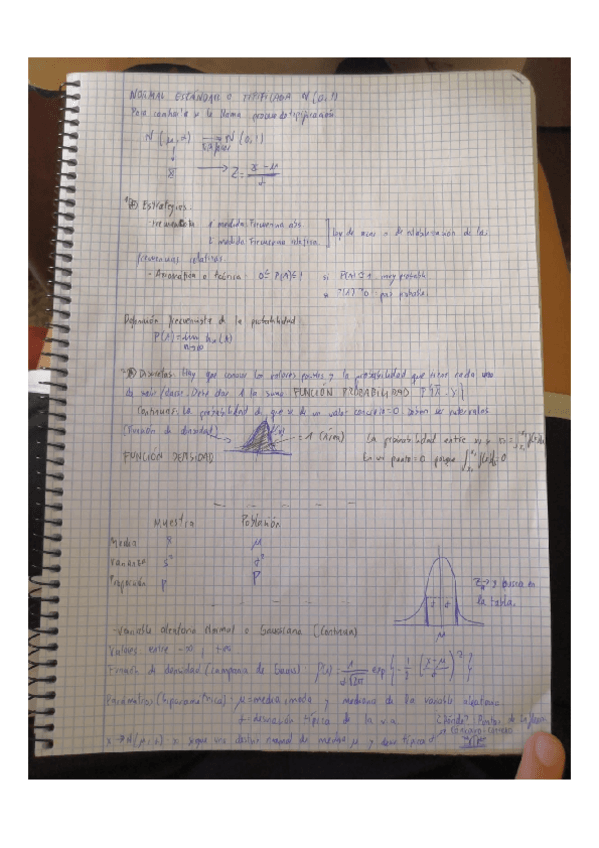 NORMAL ESTÁNDAR O TIPIFICADA N(0,1)
Para contraria se le llama proceso de tipificación
N(μ,σ) → N(0,1)
x → Z = x-μ / σ
Estrategias:
x medida Frecuencia abs.
t medida Frecuencia relativa
Ley de azar o de estabilización de las
frecuencias relativas.
- Axiomática o teórica: 0≤P(A)≤1 si P(A)→1 muy probable
P(A)→0 poco probable
Definición frecuentista de la probabilidad
P(A)=lim hn(A)
n→∞
Discretas: Hay que conocer los valores y la probabilidad que tiene cada uno
de salir. Debe dar 1 la suma FUNCIÓN PROBABILIDAD
Continuas: La probabilidad de que x de un valor concreto=0 intervalos
(Función de densidad) f(x) =1 (Área)
La probabilidad entre x₁ y x₂ = ∫ f(x)dx
FUNCIÓN DENSIDAD
En un punto=0 porque ∫ f(x)dx=0
Muestra Población
Media x̄ μ
Varianza s² σ²
Proporción p P
y busca en
la tabla.
μ
- Variable aleatoria Normal o Gaussiana (Continua)
Valores entre -∞ y +∞
Función de densidad (campana de Gauss): f(x) = 1/σ√2π exp{-1/2 (x-μ/σ)²}
Parámetros: μ=media, moda y mediana de la variable aleatoria
σ=desviación típica de la v.a. ¿Dónde? Puntos de inflexión
x→N(μ,σ) x sigue una normal de media μ y desv típica σ